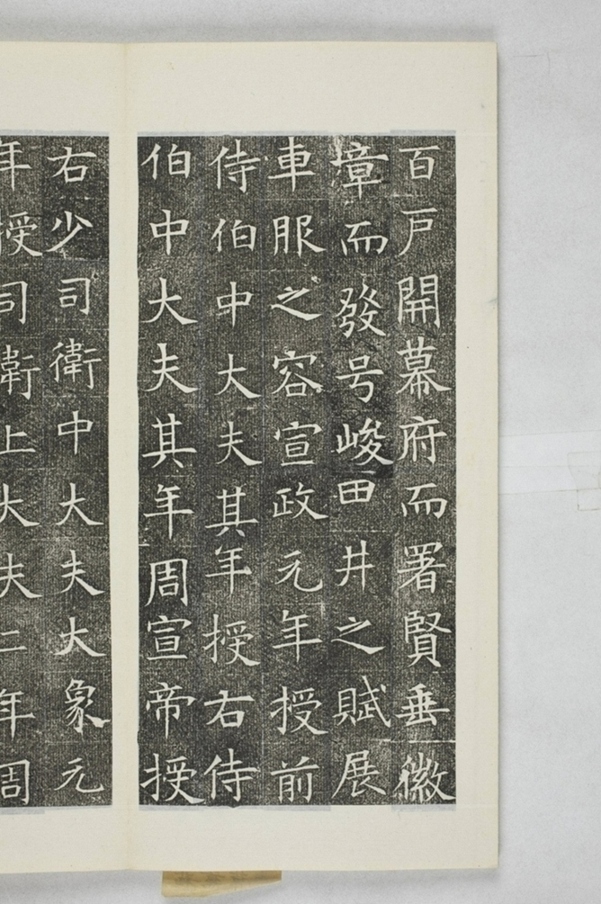 百戸開幕府而署賢垂徽
章而發号峻田井之賦展
車服之容宣政元年授前
侍伯中大夫其年授右侍
伯中大夫其年周宣帝授
右少司衛中大夫大象元
年授司衛上大夫二年周